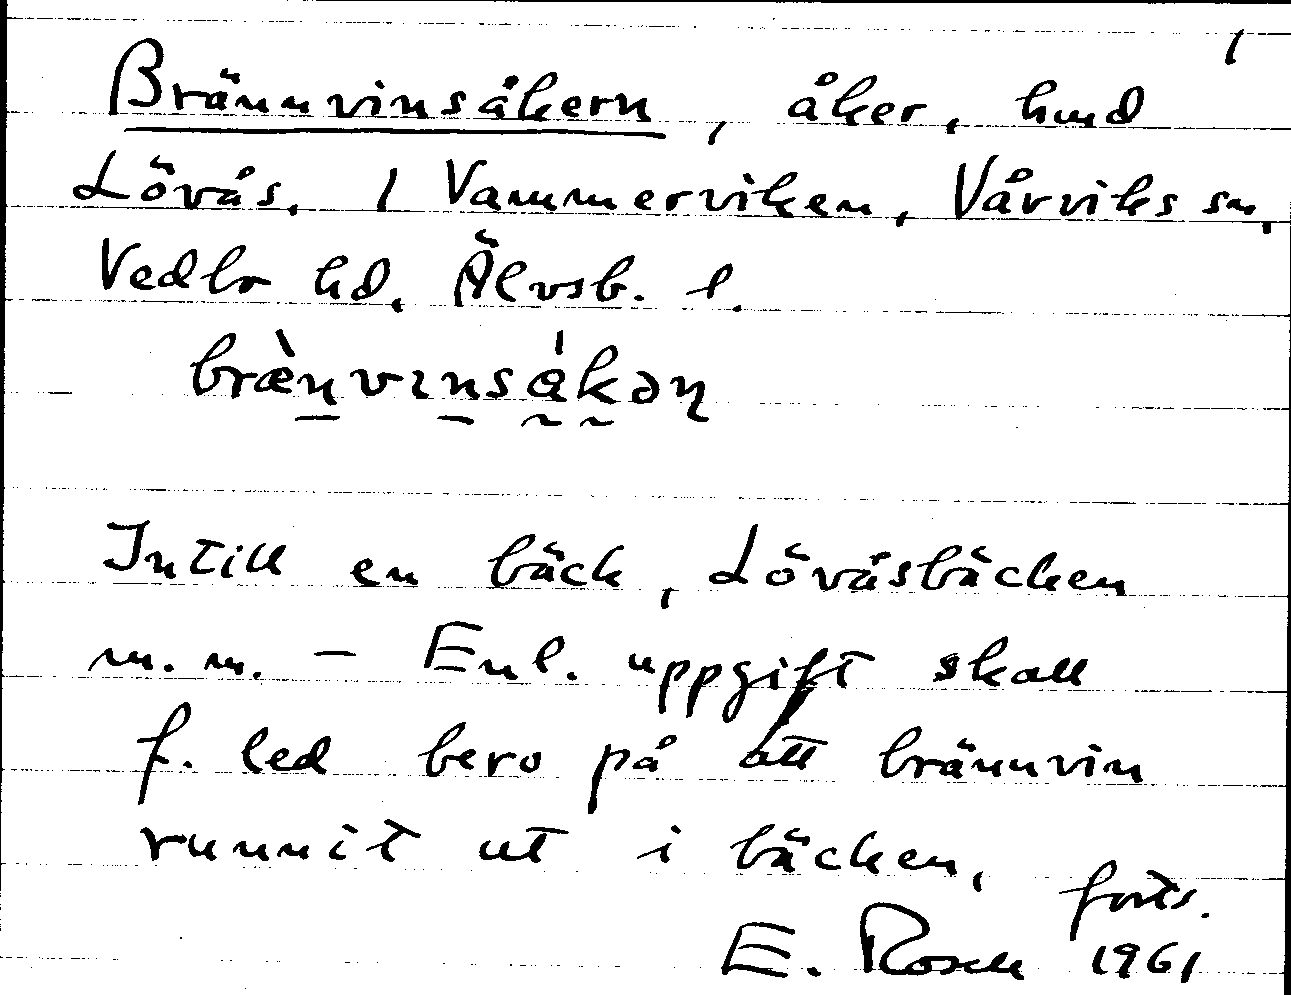 1
Brännvinsåkern, åker, hmd
Lövås, 1 Vammerviken, Vårviks sn,
Vedbo hd, Älvsb. l.
Intill en bäck, Lövåsbäcken
m.m. – Enl. uppgift skall
f. led bero på att brännvin
runnit ut i bäcken,
forts.
E. Rosell 1961